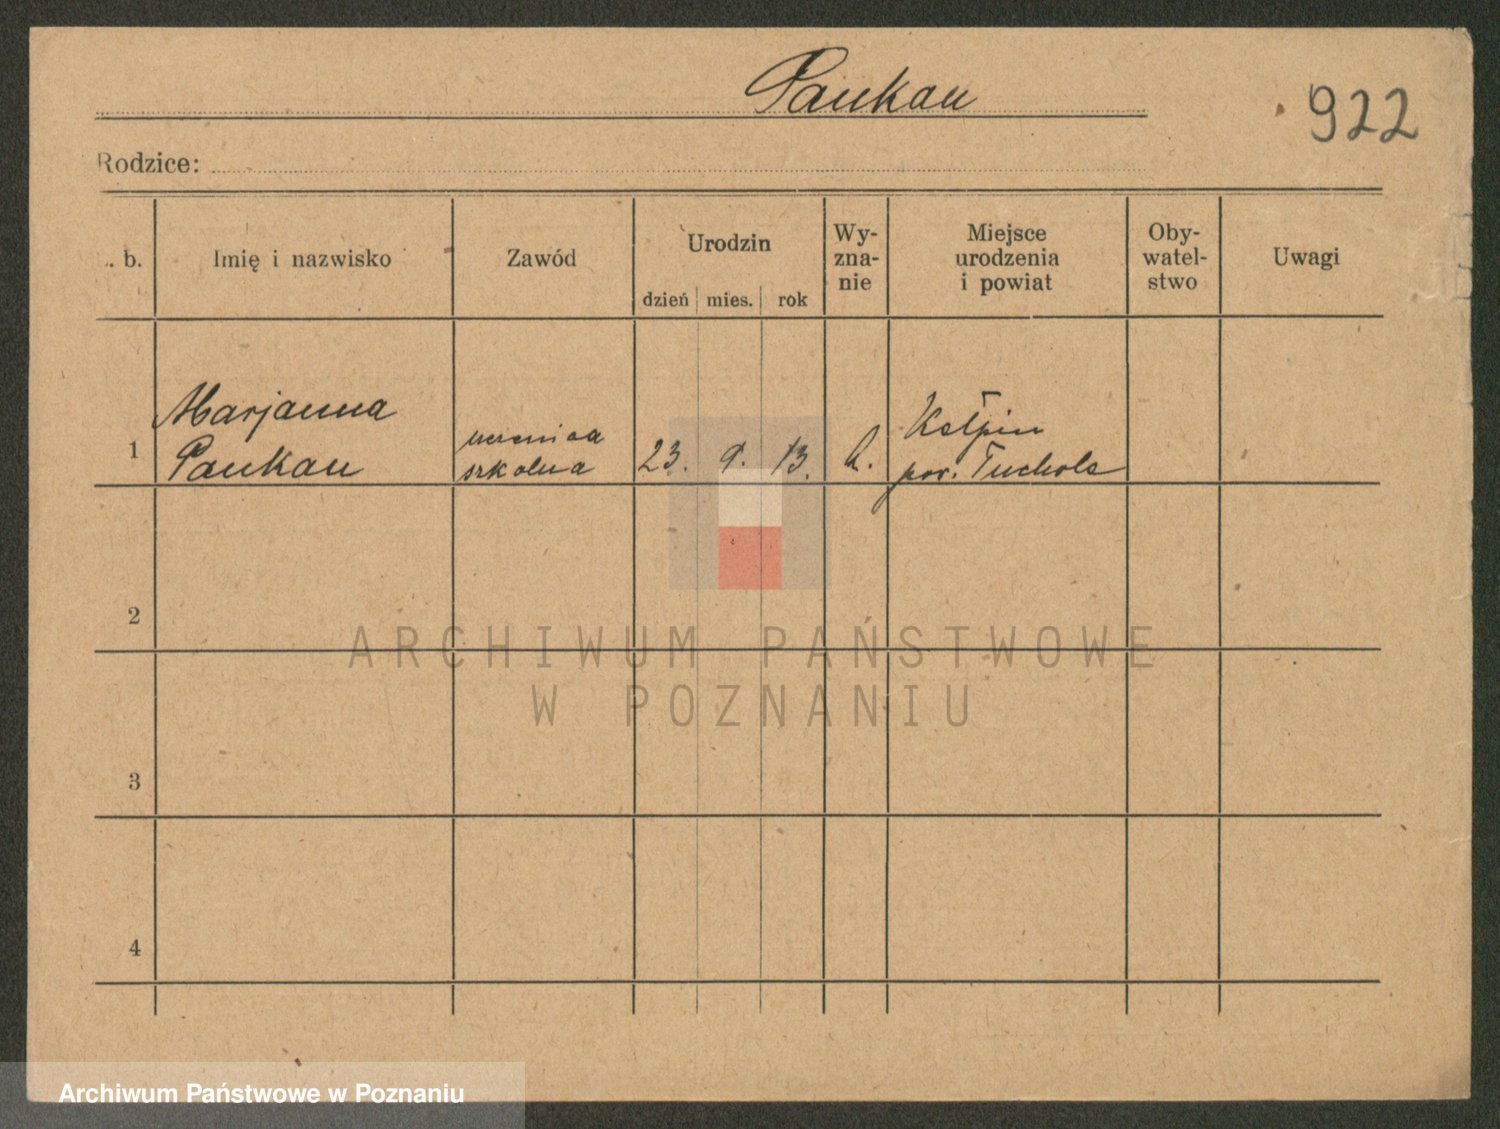 Paukau
922
Rodzice:
. b.
Imię i nazwisko
Zawód
Urodzin
dzień mies. rok
Wy-
zna-
nie
Miejsce
urodzenia
i powiat
Oby-
watel-
stwo
Uwagi
1
Marjanna
Paukau
uczenica
szkolna
23. 9. 13.
k.
Kełpin
pow. Tuchola
2
3
4
ARCHIWUM PAŃSTWOWE
W POZNANIU
Archiwum Państwowe w Poznaniu